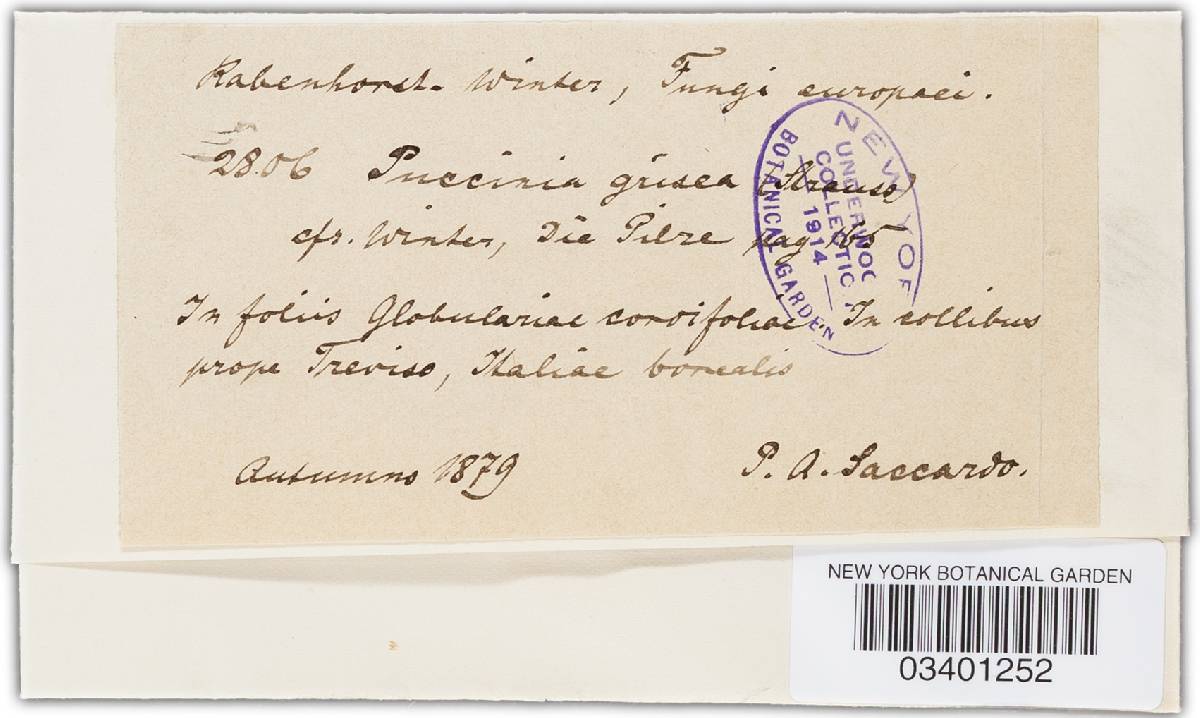 Rabenhorst-Winter, Fungi europaei.
2806 Puccinia grisea (Strauss)
cfr. Winter, Die Pilze pag 165
In foliis Globulariae cordifoliae. In collibus
prope Treviso, Italiae borealis
Autumno 1879 P. A. Saccardo.
NEW YOR
BOTANICAL GARDEN
UNDERWOO
COLLECTIO
1914
NEW YORK BOTANICAL GARDEN
03401252